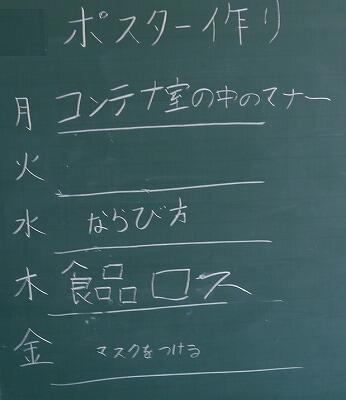 ポスター作り
月 コンテナ室の中のマナー
火
水 ならび方
木 食品ロス
金 マスクをつける